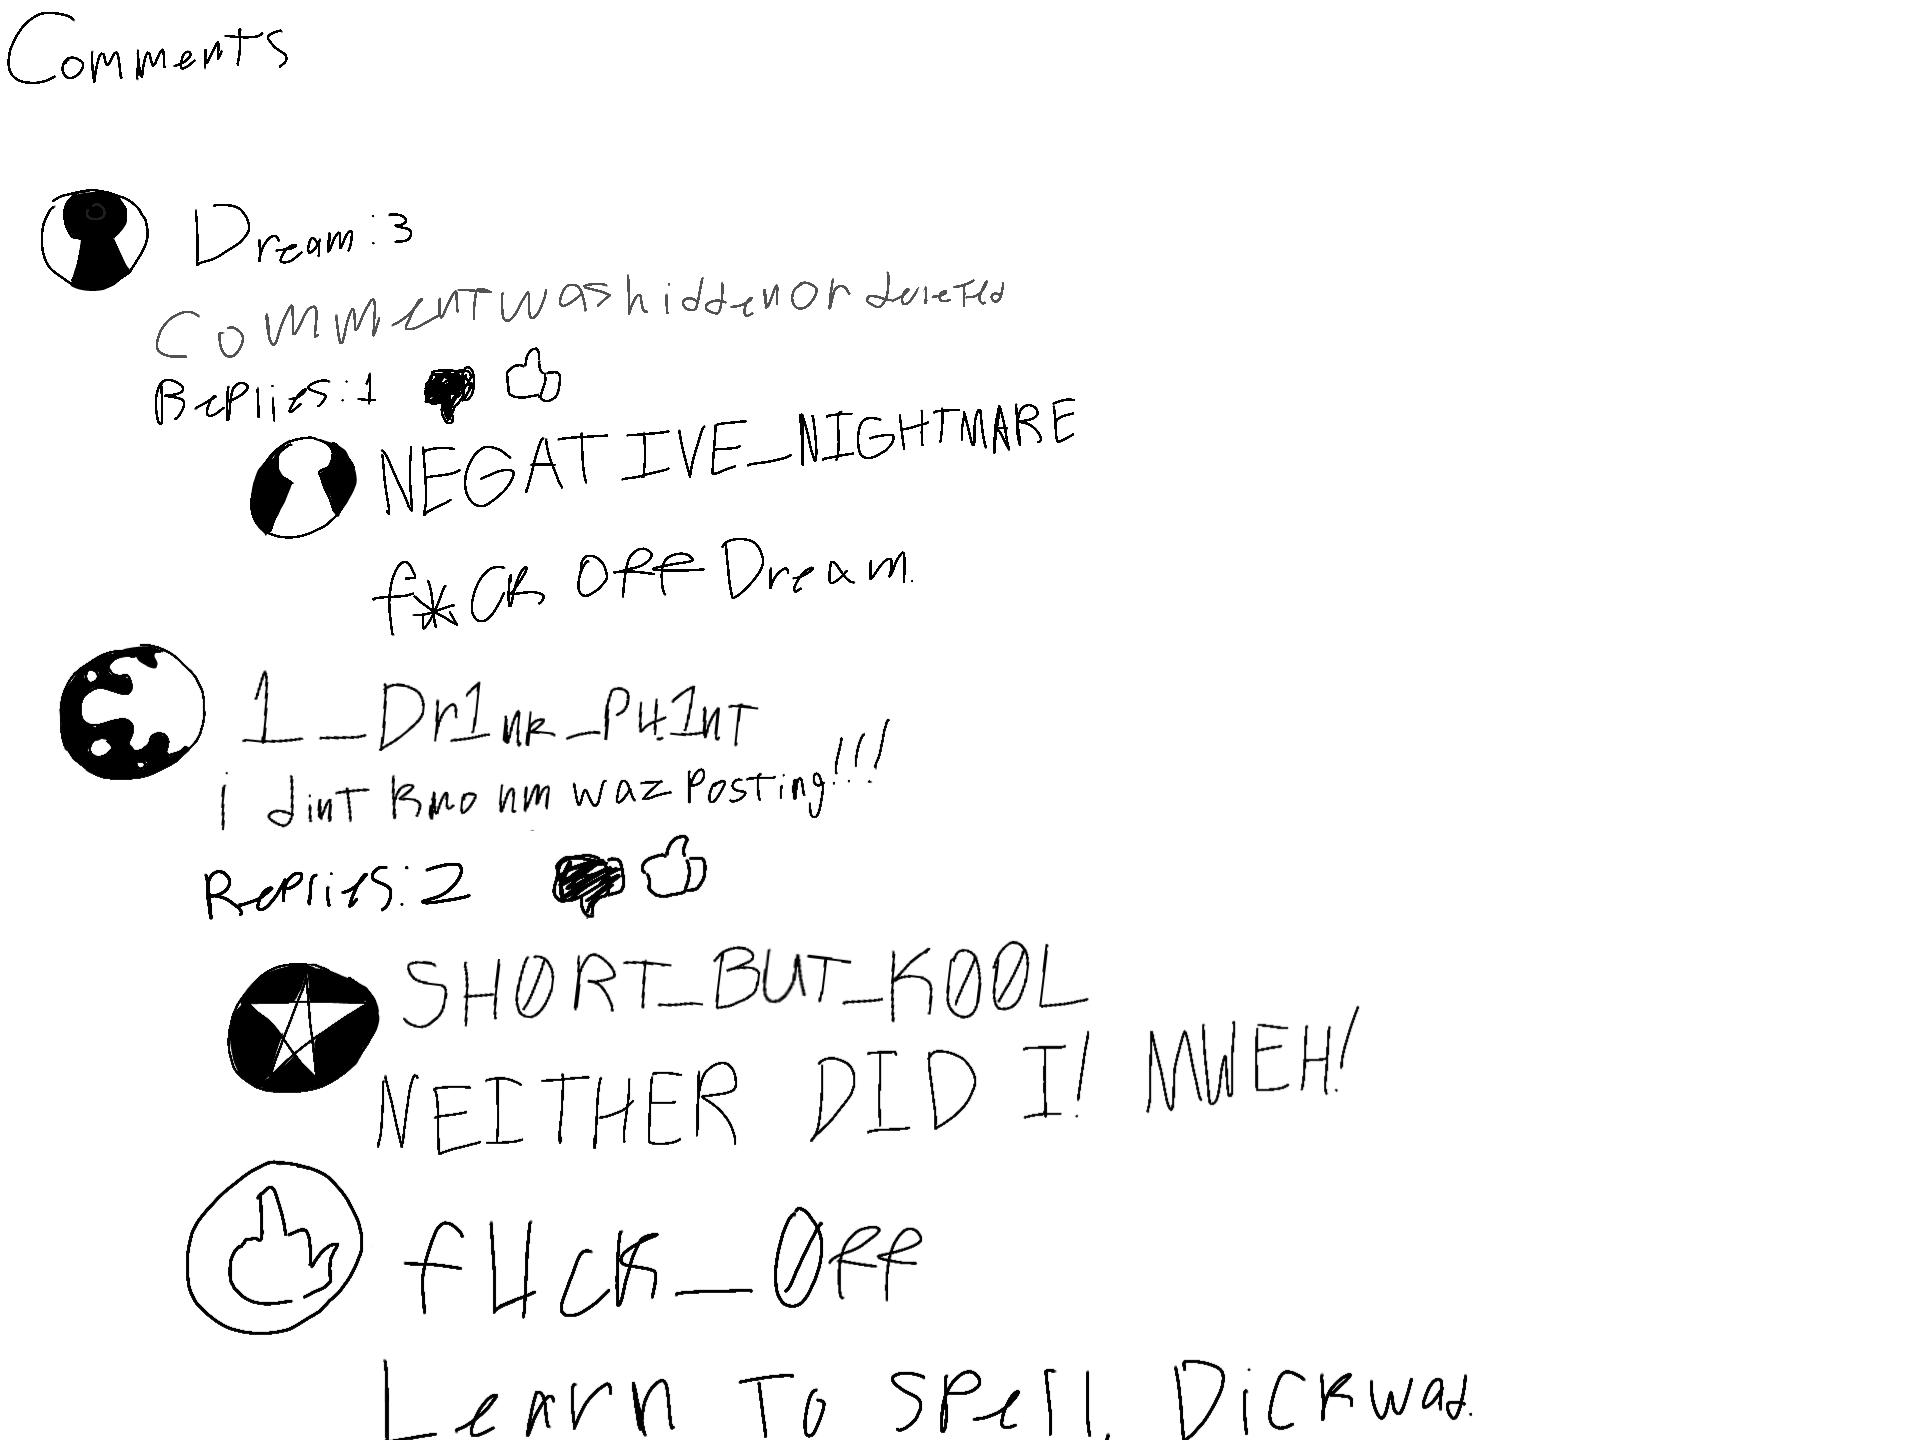 Comments
Dream:3
Comment was hidden or deleted
Replies:1
NEGATIVE_NIGHTMARE
f*ck off Dream.
1_Dr1nk_P41nT
i dinT kno nm waz posting!!!
Replies:2
SH0RT_BUT_K00L
NEITHER DID I! MWEH!
f4ck_0ff
Learn To spell, Dickwad.